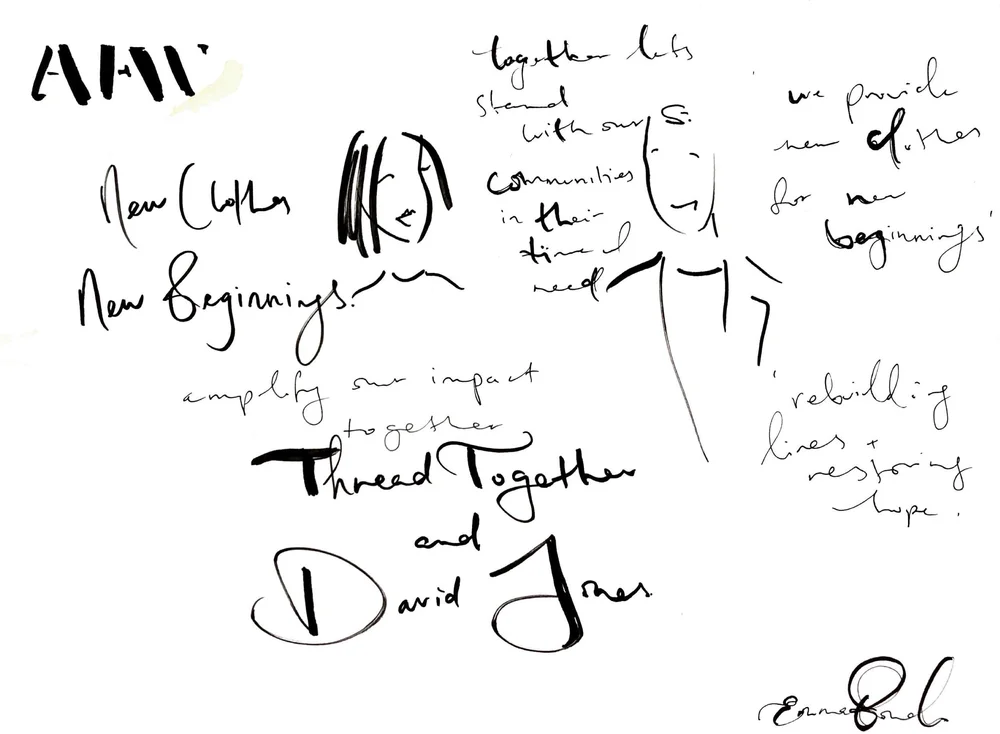 New Clothes
New Beginnings.
together lets
stand
with our
communities
in their
time of
need
'we provide
new clothes
for new
beginnings'
amplify our impact
together
'rebuilding
lives +
restoring
hope.
Thread Together
and
David Jones